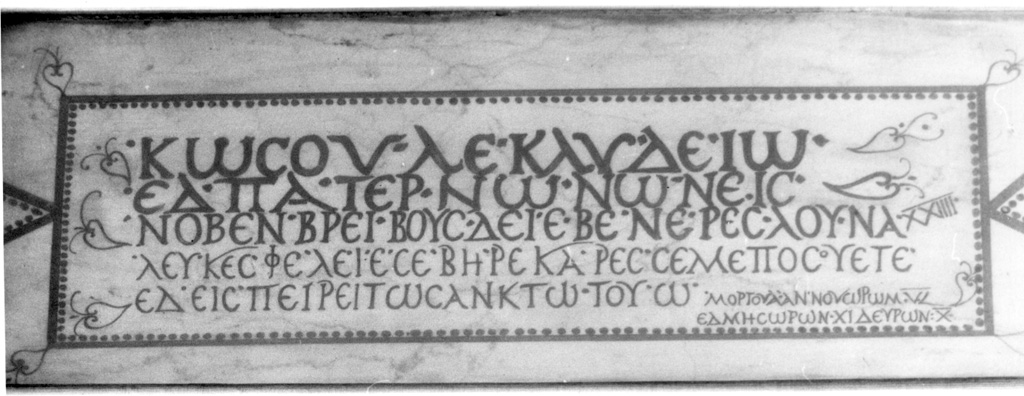 ·ΚΩϹΟΥ·ΛΕ·ΚΛΥ·ΔΕ·ΙΩ·
·ΕΔ·ΠΑ·ΤΕΡ·ΝΩ·ΝΩ·ΝΕ·ΙϹ·
·ΝΟΒΕΝ·ΒΡΕΙ·ΒΟΥϹ·ΔΕΙ·Ε·ΒΕ·ΝΕ·ΡΕϹ·ΛΟΥ·ΝΑ·XXIIII
·ΛΕΥΚΕϹ·ΦΕ·ΛΕΙ·Ε·ϹΕ·ΒΗ·ΡΕ ΚΑ·ΡΕϹ·ϹΕΜΕΠΟϹΟΥΕΤΕ
ΕΔ·ΕΙϹ·ΠΕΙΡΕΙΤΩϹΑΝΚΤΩ·ΤΟΥ·Ω·
·ΜΟΡΤΟΥΑ·ΑΝ·ΝΟΥΩΡΩΜ·
ΕΔ·ΜΗϹΩΡΩΝ·ΧΙ·ΔΕΥΡΩΝ·Χ·